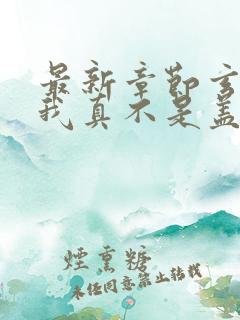 最新章节玄
我真不是盖
煙熏糖
未经同意禁止转载